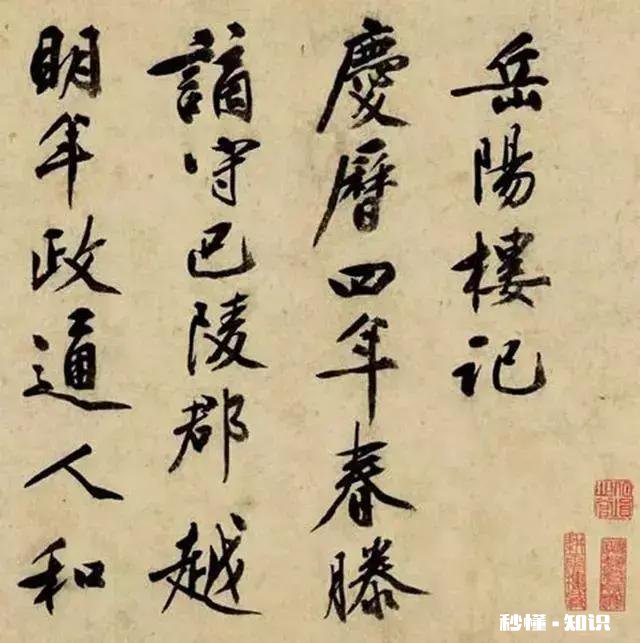 岳陽樓記
慶曆四年春滕
謫守巴陵郡越
明年政通人和
秒懂·知识